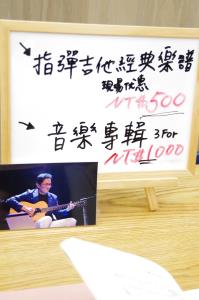 指彈吉他經典樂譜
現場優惠
NT$500
音樂專輯 3 For
NT$1000